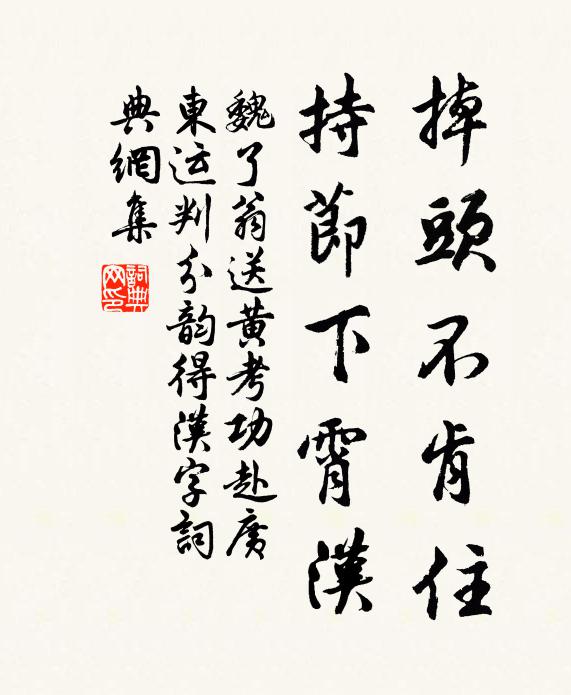 掉頭不肯住
持節下霄漢
魏了翁送黃考功赴廣
東运判分韵得漢字詞
典網集
詞典
网印